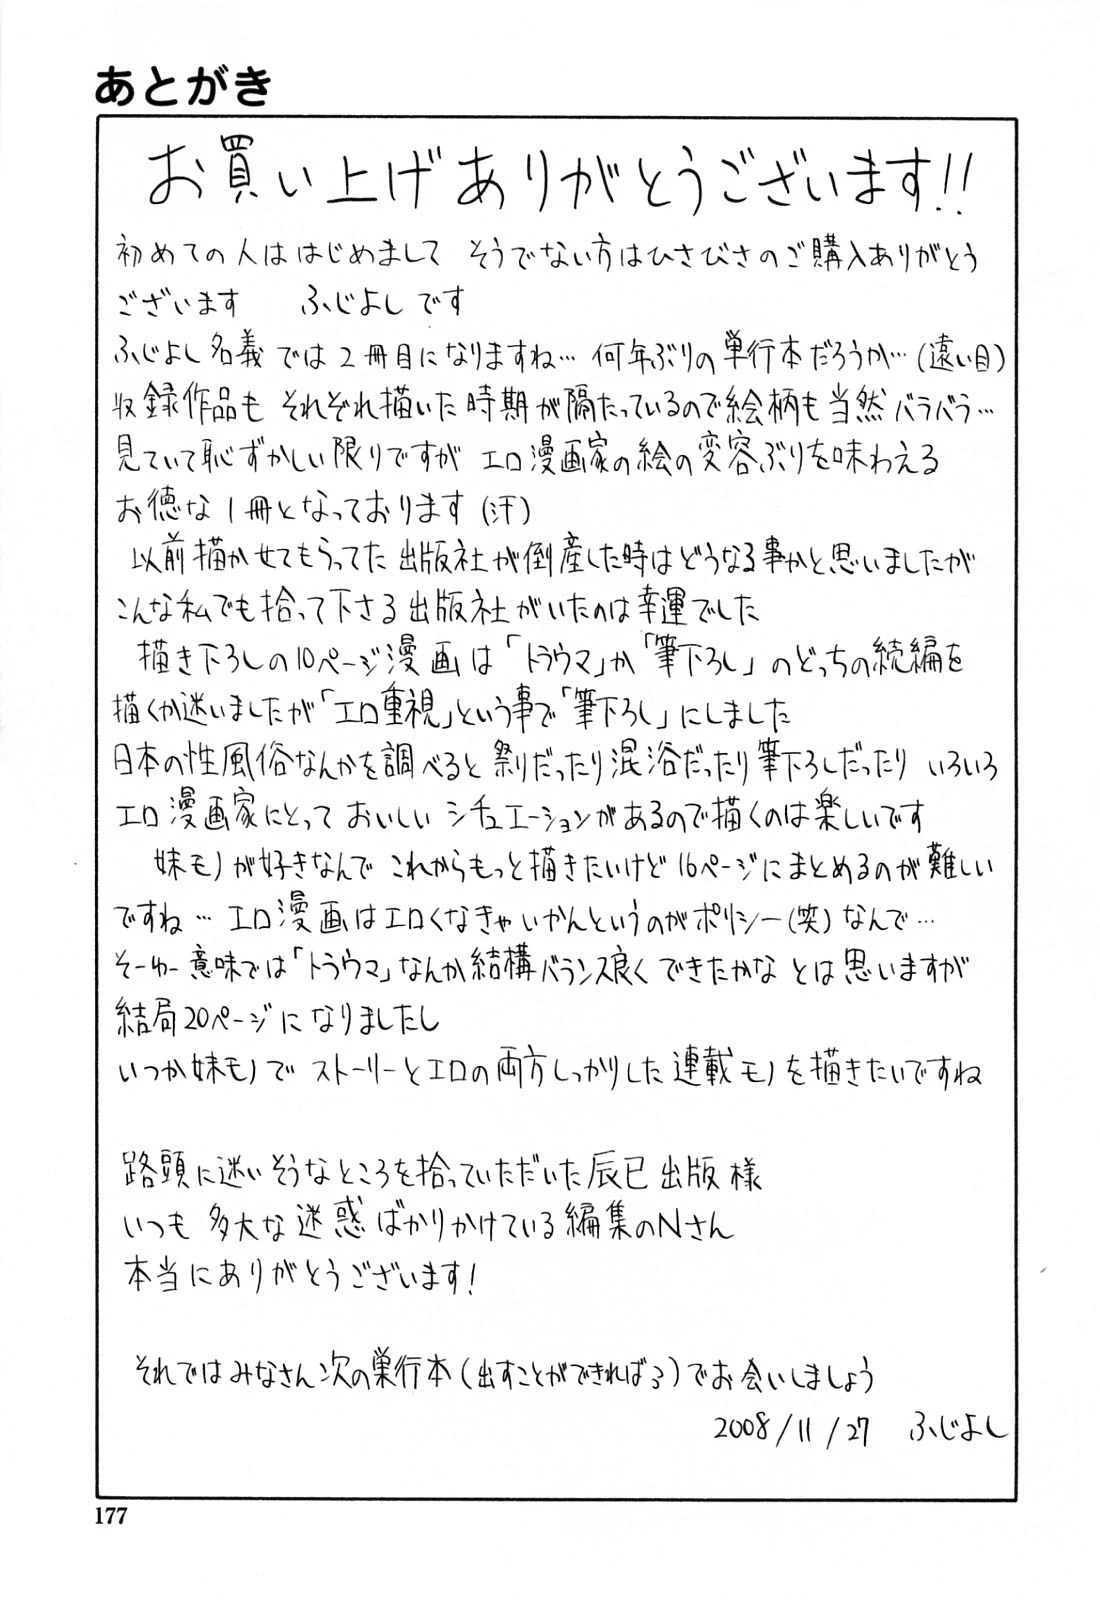 あとがき
お買い上げありがとうございます!!
初めての人ははじめまして そうでない方はひさびさのご購入ありがとう
ございます ふじよしです
ふじよし名義では2冊目になりますね… 何年ぶりの単行本だろうか…(遠い目)
収録作品も それぞれ描いた時期が隔たっているので絵柄も当然バラバラ…
見ていて恥ずかしい限りですが エロ漫画家の絵の変容ぶりを味わえる
お徳な1冊となっております(汗)
以前描かせてもらってた出版社が倒産した時はどうなる事かと思いましたが
こんな私でも拾って下さる出版社がいたのは幸運でした
描き下ろしの10ページ漫画は「トラウマ」か「筆下ろし」のどっちの続編を
描くか迷いましたが「エロ重視」という事で「筆下ろし」にしました
日本の性風俗なんかを調べると祭りだったり混浴だったり筆下ろしだったり いろいろ
エロ漫画家にとって おいしい シチュエーションがあるので描くのは楽しいです
妹モノが好きなんで これからもっと描きたいけど16ページにまとめるのが難しい
ですね… エロ漫画はエロくなきゃいかんというのがポリシー(笑)なんで…
そーゆー意味では「トラウマ」なんか結構バランス良くできたかな とは思いますが
結局20ページになりましたし
いつか妹モノで ストーリーとエロの両方しっかりした連載モノを描きたいですね
路頭に迷いそうなところを拾っていただいた辰巳出版様
いつも多大な迷惑ばかりかけている編集のNさん
本当にありがとうございます!
それではみなさん次の単行本(出すことができればネ)でお会いしましょう
2008/11/27 ふじよし
177